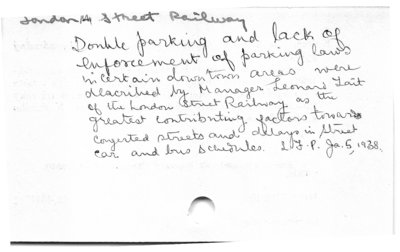 London Street Railway
Double parking and lack of
enforcement of parking laws
in certain downtown areas were
described by Manager Leonard Tait
of the London Street Railway as the
greatest contributing factors towards
congested streets and delays in street
car and bus schedules. L.F.P. Ja. 5, 1938.